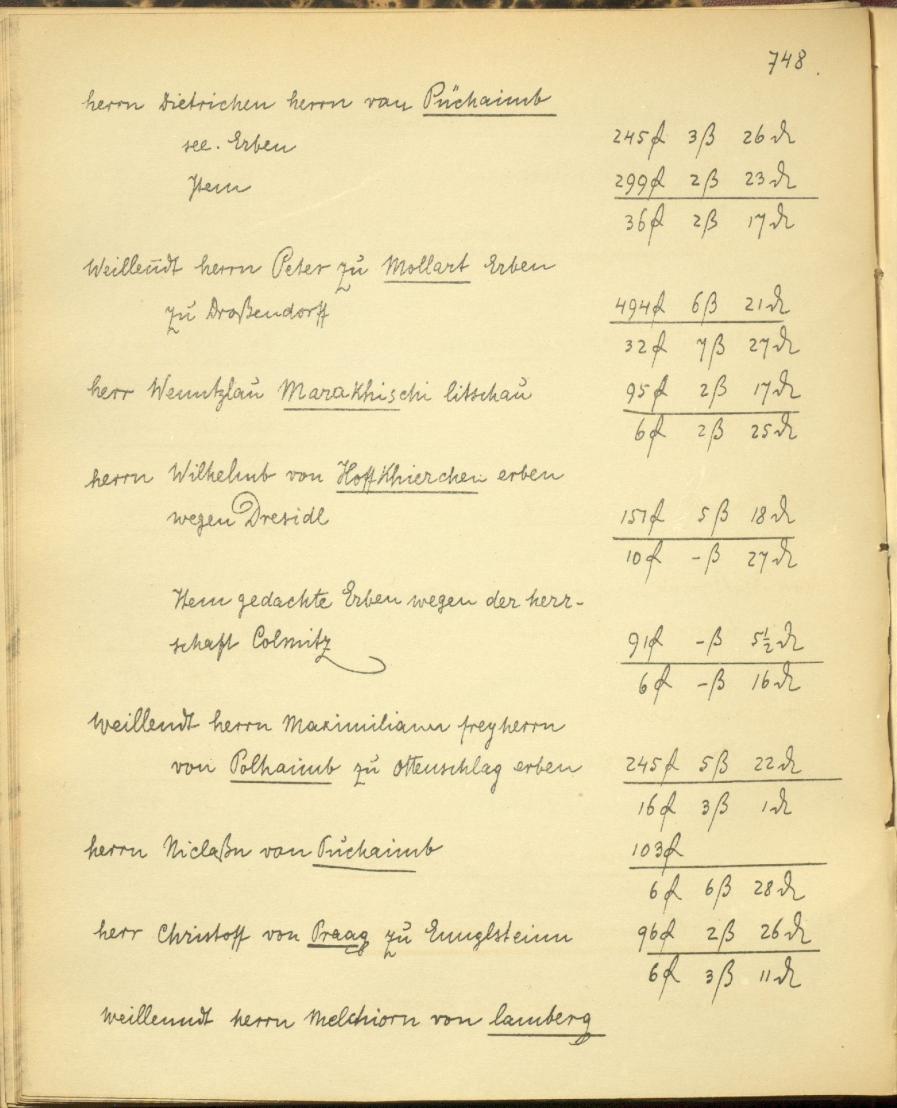 748.
herrn Dietrichen herrn von Püchaimb
see. Erben 245 fl 3 ß 26 ₰
Item 299 fl 2 ß 23 ₰
36 fl 2 ß 17 ₰
Weillendt herrn Peter zu Mollart Erben
zu Droßendorff 494 fl 6 ß 21 ₰
32 fl 7 ß 27 ₰
herr Wenntzlau Marakhischi litschau 95 fl 2 ß 17 ₰
6 fl 2 ß 25 ₰
herrn Wilhelmb von Hoffkhierchen erben
wegen Dresidl 151 fl 5 ß 18 ₰
10 fl - ß 27 ₰
Item gedachte Erben wegen der herr-
schaft Colmitz 91 fl - ß 5½ ₰
6 fl - ß 16 ₰
weillendt herrn Maximiliann freyherrn
von Polhaimb zu Ottenschlag erben 245 fl 5 ß 22 ₰
16 fl 3 ß 1 ₰
herrn Niclaßn von Puchaimb 103 fl
6 fl 6 ß 28 ₰
herr Christoff von Praag zu Ennglsteinn 96 fl 2 ß 26 ₰
6 fl 3 ß 11 ₰
weillenndt herrn Melchiorn von lamberg